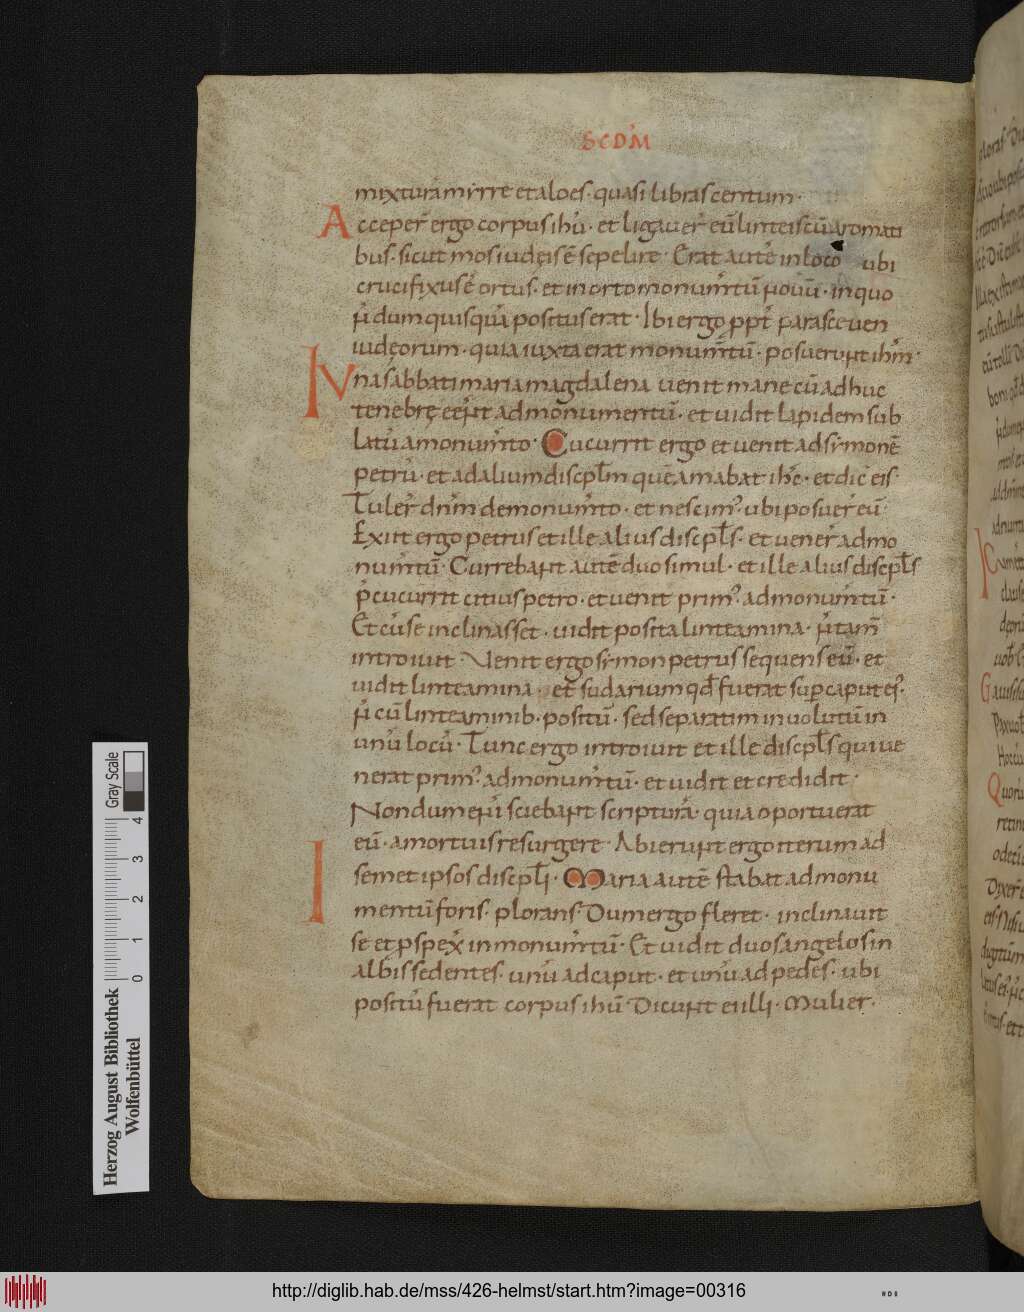 SCDM
mixturā mẏrre et aloes · quasi libras centum ·
Acceper̄ ergo corpus ihū · et ligauer̄ eū linteis cū aromati
bus · sicut mos iudęis ē sepelire · Erat autē in loco ubi
crucifixus ē ortus · et in orto monum̄tū nouū · in quo
n̄dum quisquā positus erat · Ibi ergo ꝓpt̄ parasceuen
iudęorum · quia iuxta erat monum̄tū · posuerunt ihm̄ ·
Una sabbati maria magdalena uenit mane cū adhuc
tenebrę eēnt ad monumentū · et uidit lapidem sub
latū a monum̄to · Cucurrit ergo et uenit ad sẏmonē
petrū · et ad alium discpl̄m quē amabat ihc̄ · et dic̄ eis ·
Tuler̄ dn̄m de monum̄to · et nescim᾽ · ubi posuer̄ eū ·
Exiit ergo petrus et ille alius discpl̄s · et uener̄ ad mo
num̄tū · Currebant autē duo simul · et ille alius discpl̄s
p̄cucurrit citius petro · et uenit prim᾽ ad monum̄tū ·
Et cū se inclinasset · uidit posita linteamina · n̄ tam̄
introiuit · Uenit ergo sẏmon petrus sequens eū · et
uidit linteamina · et sudarium qd̄ fuerat sup caput ei᾽ ·
n̄ cū linteaminib · positū · sed separatim inuolutū in
unū locū · Tunc ergo introiuit et ille discpl̄s qui ue
nerat prim᾽ ad monum̄tū · et uidit et credidit ·
Nondum eni̅ sciebant scripturā · quia oportuerat
eū · a mortuis resurgere · Abierunt ergo iterum ad
semet ipsos discpl̄i · Maria autē stabat ad monu
mentū foris · plorans · Dum ergo fleret · inclinauit
se et ꝓspex̄ in monum̄tū · Et uidit duos angelos in
albis sedentes · unū ad caput · et unū ad pedes · ubi
positū fuerat corpus ihū · Dicunt ei illi · Mulier ·
Herzog August Bibliothek
Wolfenbüttel
Gray Scale
0 1 2 3 4
http://diglib.hab.de/mss/426-helmst/start.htm?image=00316